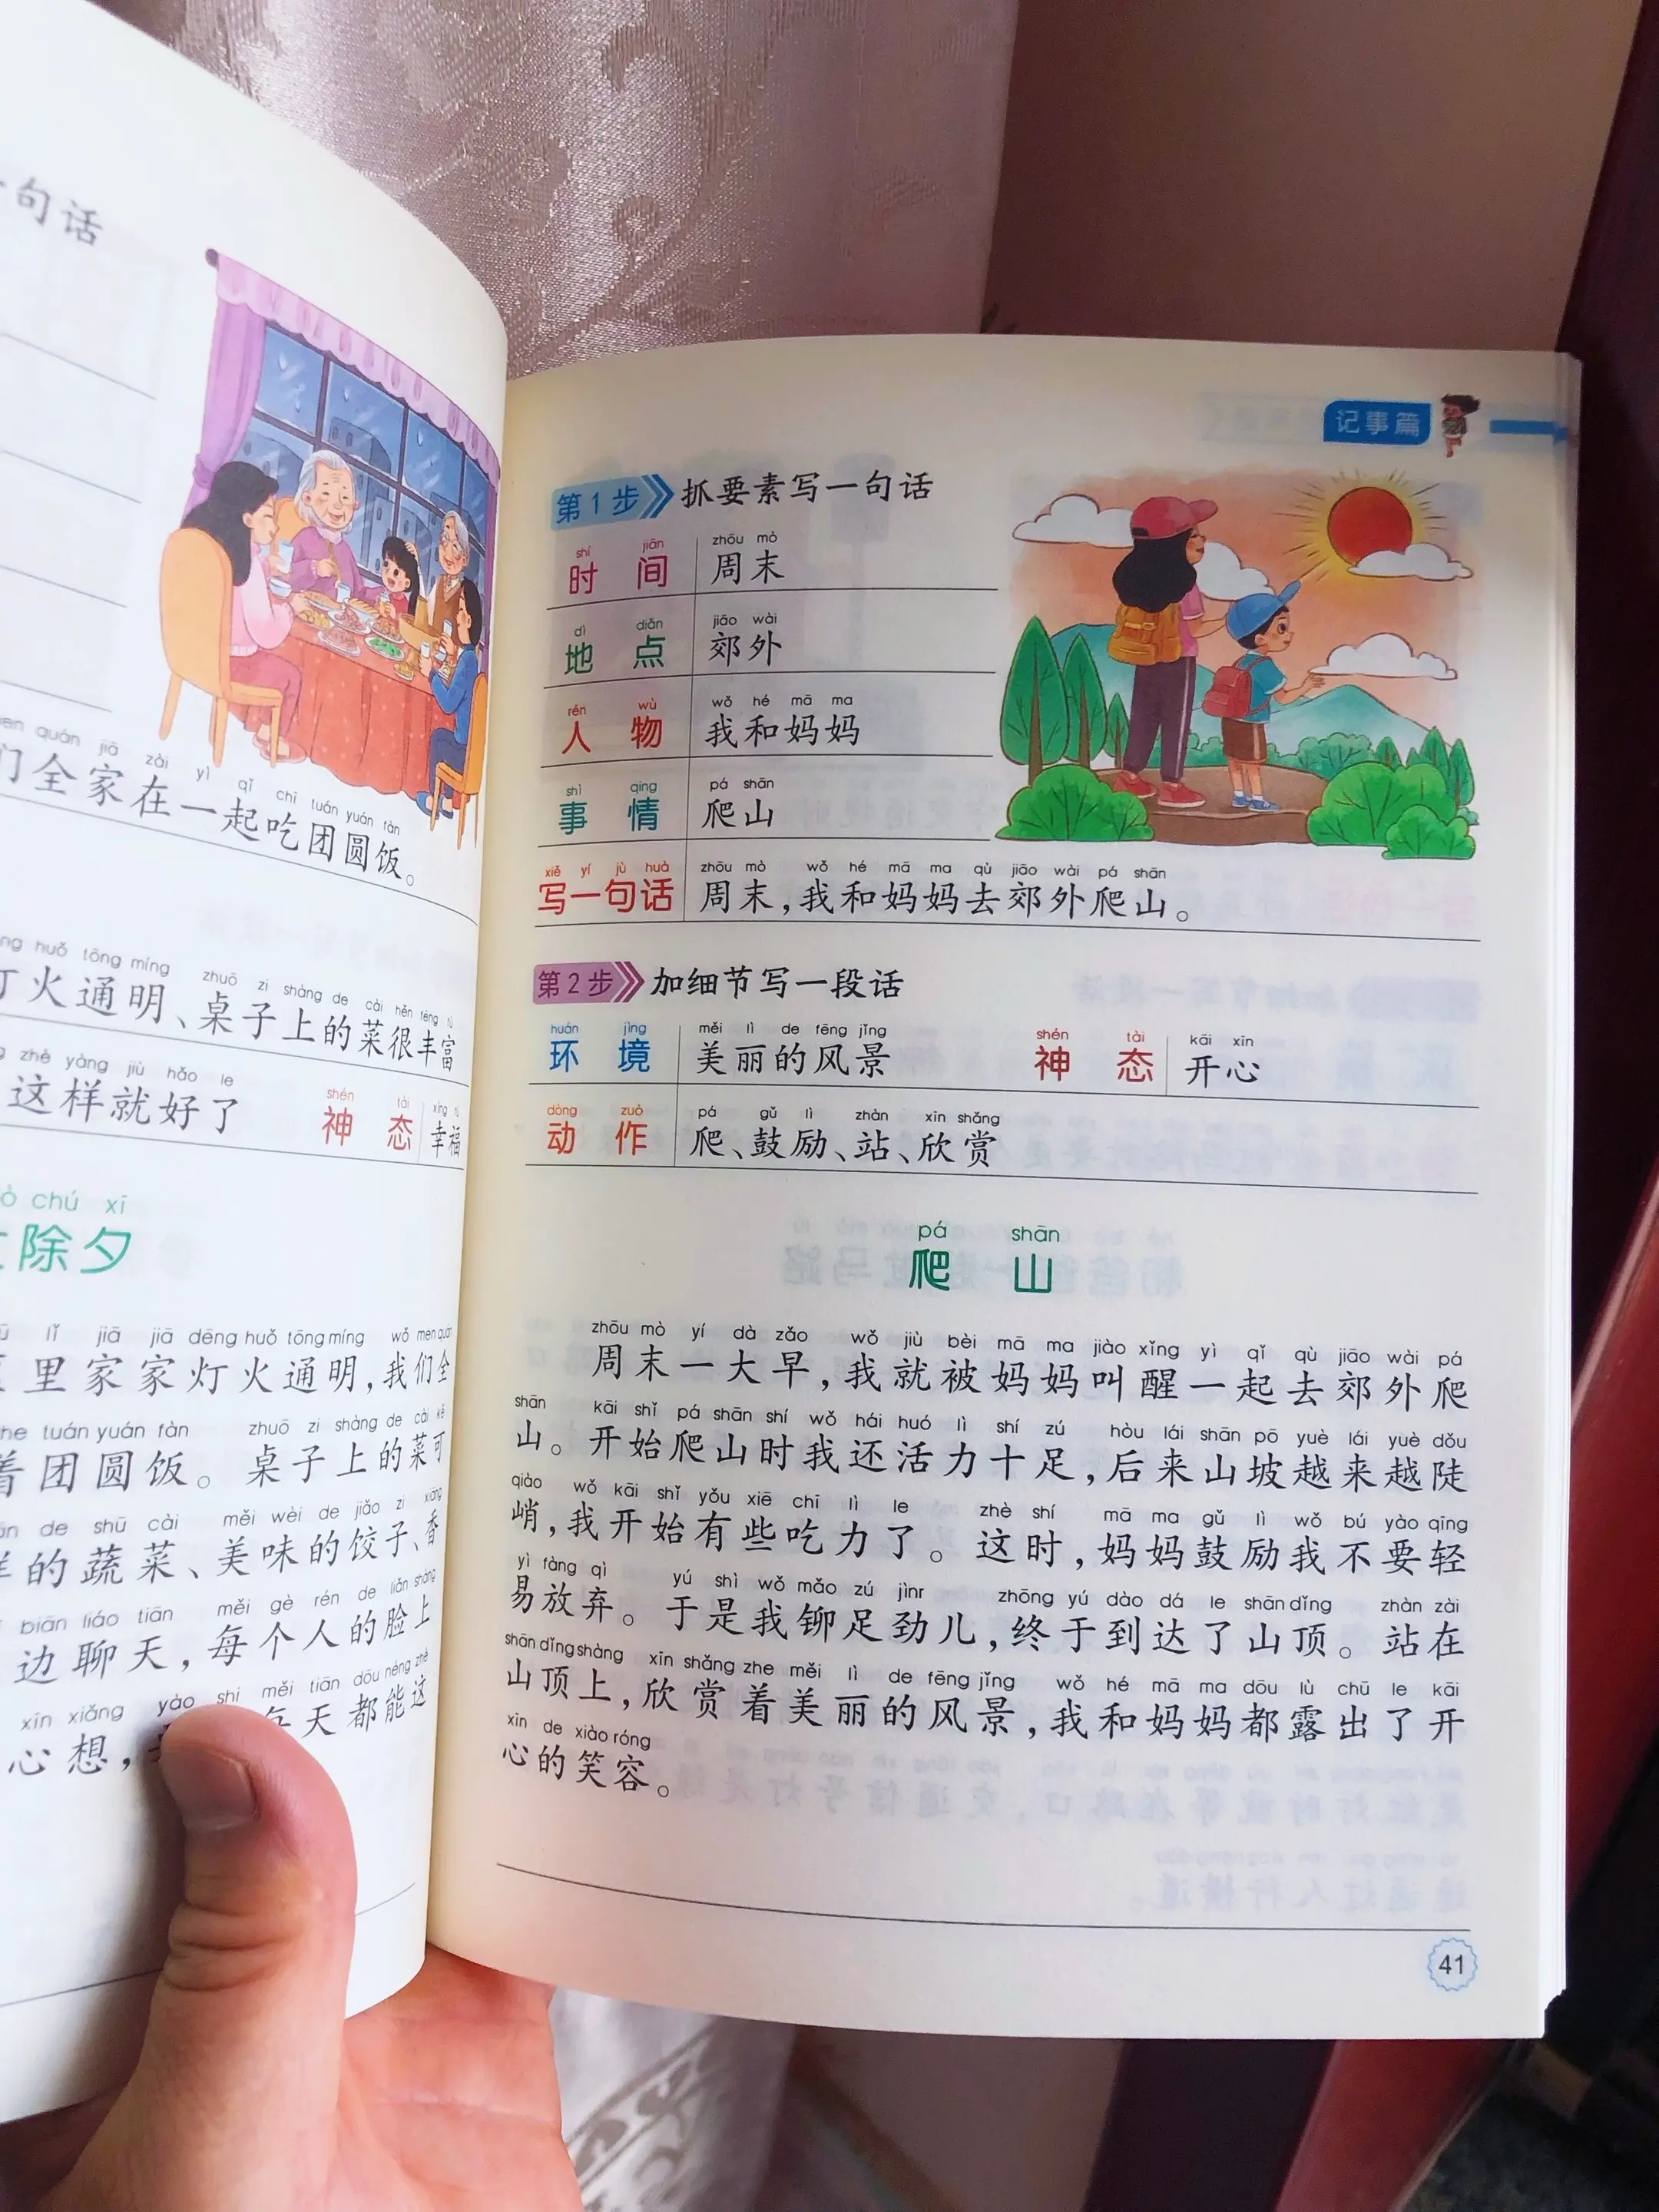 句话
quán jiā zài yì qǐ chī tuán yuán fàn
们全家在一起吃团圆饭。
huǒ tōng míng zhuō zi shàng de cài hěn fēng fù
灯火通明、桌子上的菜很丰富
zhè yàng jiù hǎo le shén tài xìng fú
这样就好了 神态 幸福
chú xī
除夕
lǐ jiā jiā dēng huǒ tōng míng wǒ men quán
里家家灯火通明,我们全
zhe tuán yuán fàn zhuō zi shàng de cài kě
着团圆饭。桌子上的菜可
de shū cài měi wèi de jiǎo zi xiāng
的蔬菜、美味的饺子、香
biān liáo tiān měi gè rén de liǎn shàng
边聊天,每个人的脸上
xīn xiǎng yào shi měi tiān dōu néng zhè
心想, 每天都能这
记事篇
第1步 抓要素写一句话
shí jiān zhōu mò
时间 周末
dì diǎn jiāo wài
地点 郊外
rén wù wǒ hé mā ma
人物 我和妈妈
shì qing pá shān
事情 爬山
xiě yí jù huà zhōu mò wǒ hé mā ma qù jiāo wài pá shān
写一句话 周末,我和妈妈去郊外爬山。
第2步 加细节写一段话
huán jìng měi lì de fēng jǐng shén tài kāi xīn
环境 美丽的风景 神态 开心
dòng zuò pá gǔ lì zhàn xīn shǎng
动作 爬、鼓励、站、欣赏
pá shān
爬山
zhōu mò yí dà zǎo wǒ jiù bèi mā ma jiào xǐng yì qǐ qù jiāo wài pá
周末一大早,我就被妈妈叫醒一起去郊外爬
shān kāi shǐ pá shān shí wǒ hái huó lì shí zú hòu lái shān pō yuè lái yuè dǒu
山。开始爬山时我还活力十足,后来山坡越来越陡
qiào wǒ kāi shǐ yǒu xiē chī lì le zhè shí mā ma gǔ lì wǒ bú yào qīng
峭,我开始有些吃力了。这时,妈妈鼓励我不要轻
yì fàng qì yú shì wǒ mǎo zú jìnr zhōng yú dào dá le shān dǐng zhàn zài
易放弃。于是我铆足劲儿,终于到达了山顶。站在
shān dǐng shàng xīn shǎng zhe měi lì de fēng jǐng wǒ hé mā ma dōu lù chū le kāi
山顶上,欣赏着美丽的风景,我和妈妈都露出了开
xīn de xiào róng
心的笑容。
41